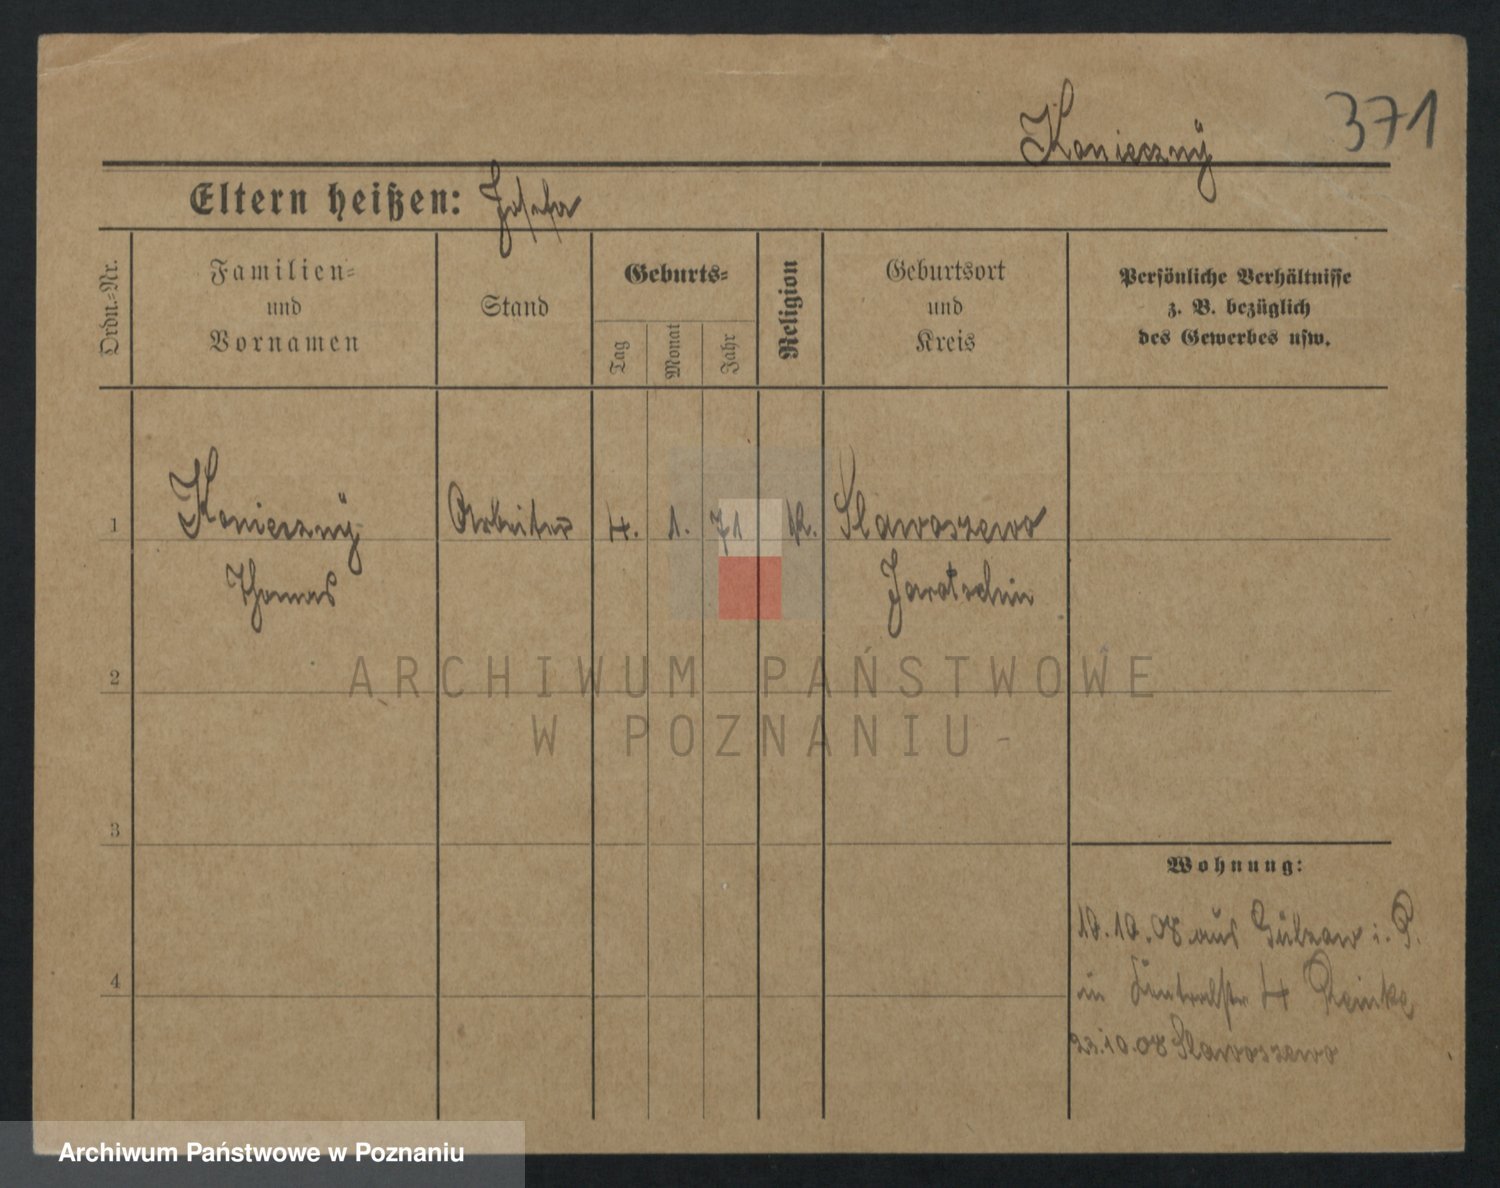 371
Konieczny
Eltern heißen: Josefa
Ordn.-Nr.
Familien-
und
Vornamen
Stand
Geburts-
Tag
Monat
Jahr
Religion
Geburtsort
und
Kreis
Persönliche Verhältnisse
z. B. bezüglich
des Gewerbes usw.
1 Konieczny Arbeiter 4. 1. 71 K. Slawoszewo
Thomas Jarotschin
2
ARCHIWUM PAŃSTWOWE
W POZNANIU-
3
Wohnung:
10.10.08 aus Gülzow i. P.
in 4 Reinke
4
23.10.08 Slawoszewo
Archiwum Państwowe w Poznaniu